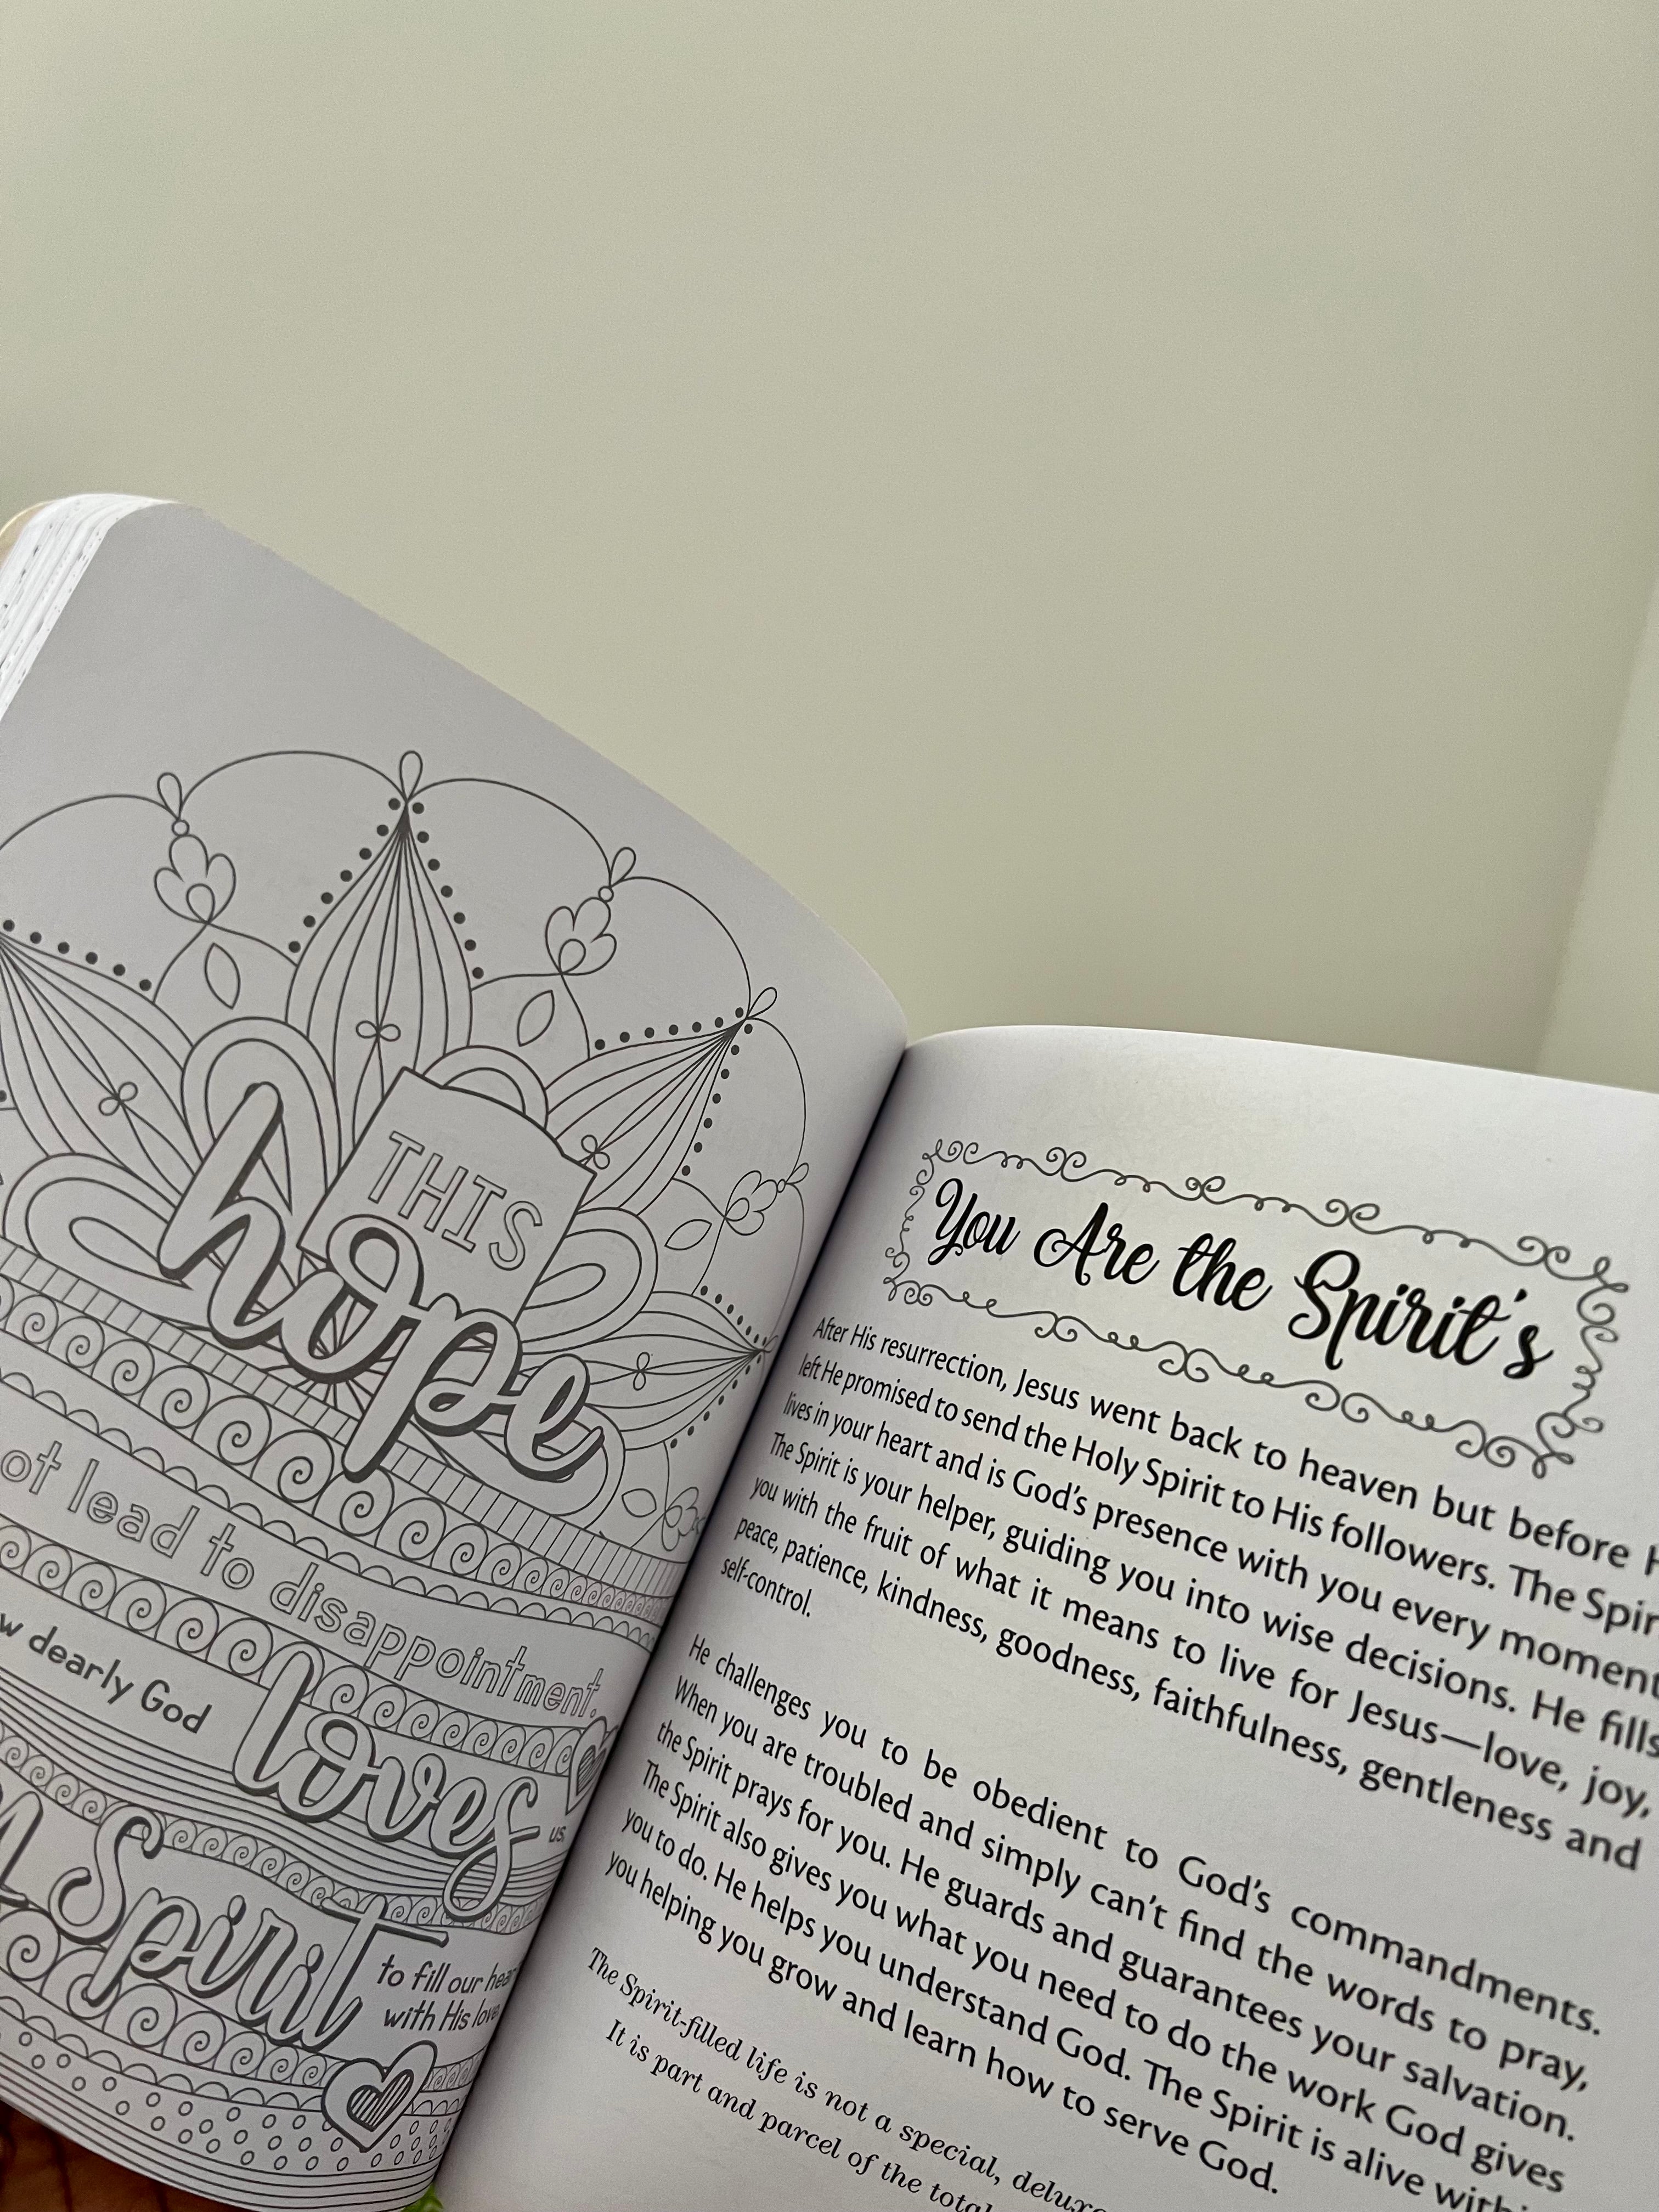 THIS
hope
ot lead to disappointment.
w dearly God
loves
us
Spirit
to fill our hear
with His love
You Are the Spirit's
After His resurrection, Jesus went back to heaven but before H
left He promised to send the Holy Spirit to His followers. The Spir
lives in your heart and is God's presence with you every moment
The Spirit is your helper, guiding you into wise decisions. He fills
you with the fruit of what it means to live for Jesus—love, joy,
peace, patience, kindness, goodness, faithfulness, gentleness and
self-control.
He challenges you to be obedient to God's commandments.
When you are troubled and simply can't find the words to pray,
the Spirit prays for you. He guards and guarantees your salvation.
The Spirit also gives you what you need to do the work God gives
you to do. He helps you understand God. The Spirit is alive within
you helping you grow and learn how to serve God.
The Spirit-filled life is not a special, deluxe
It is part and parcel of the total